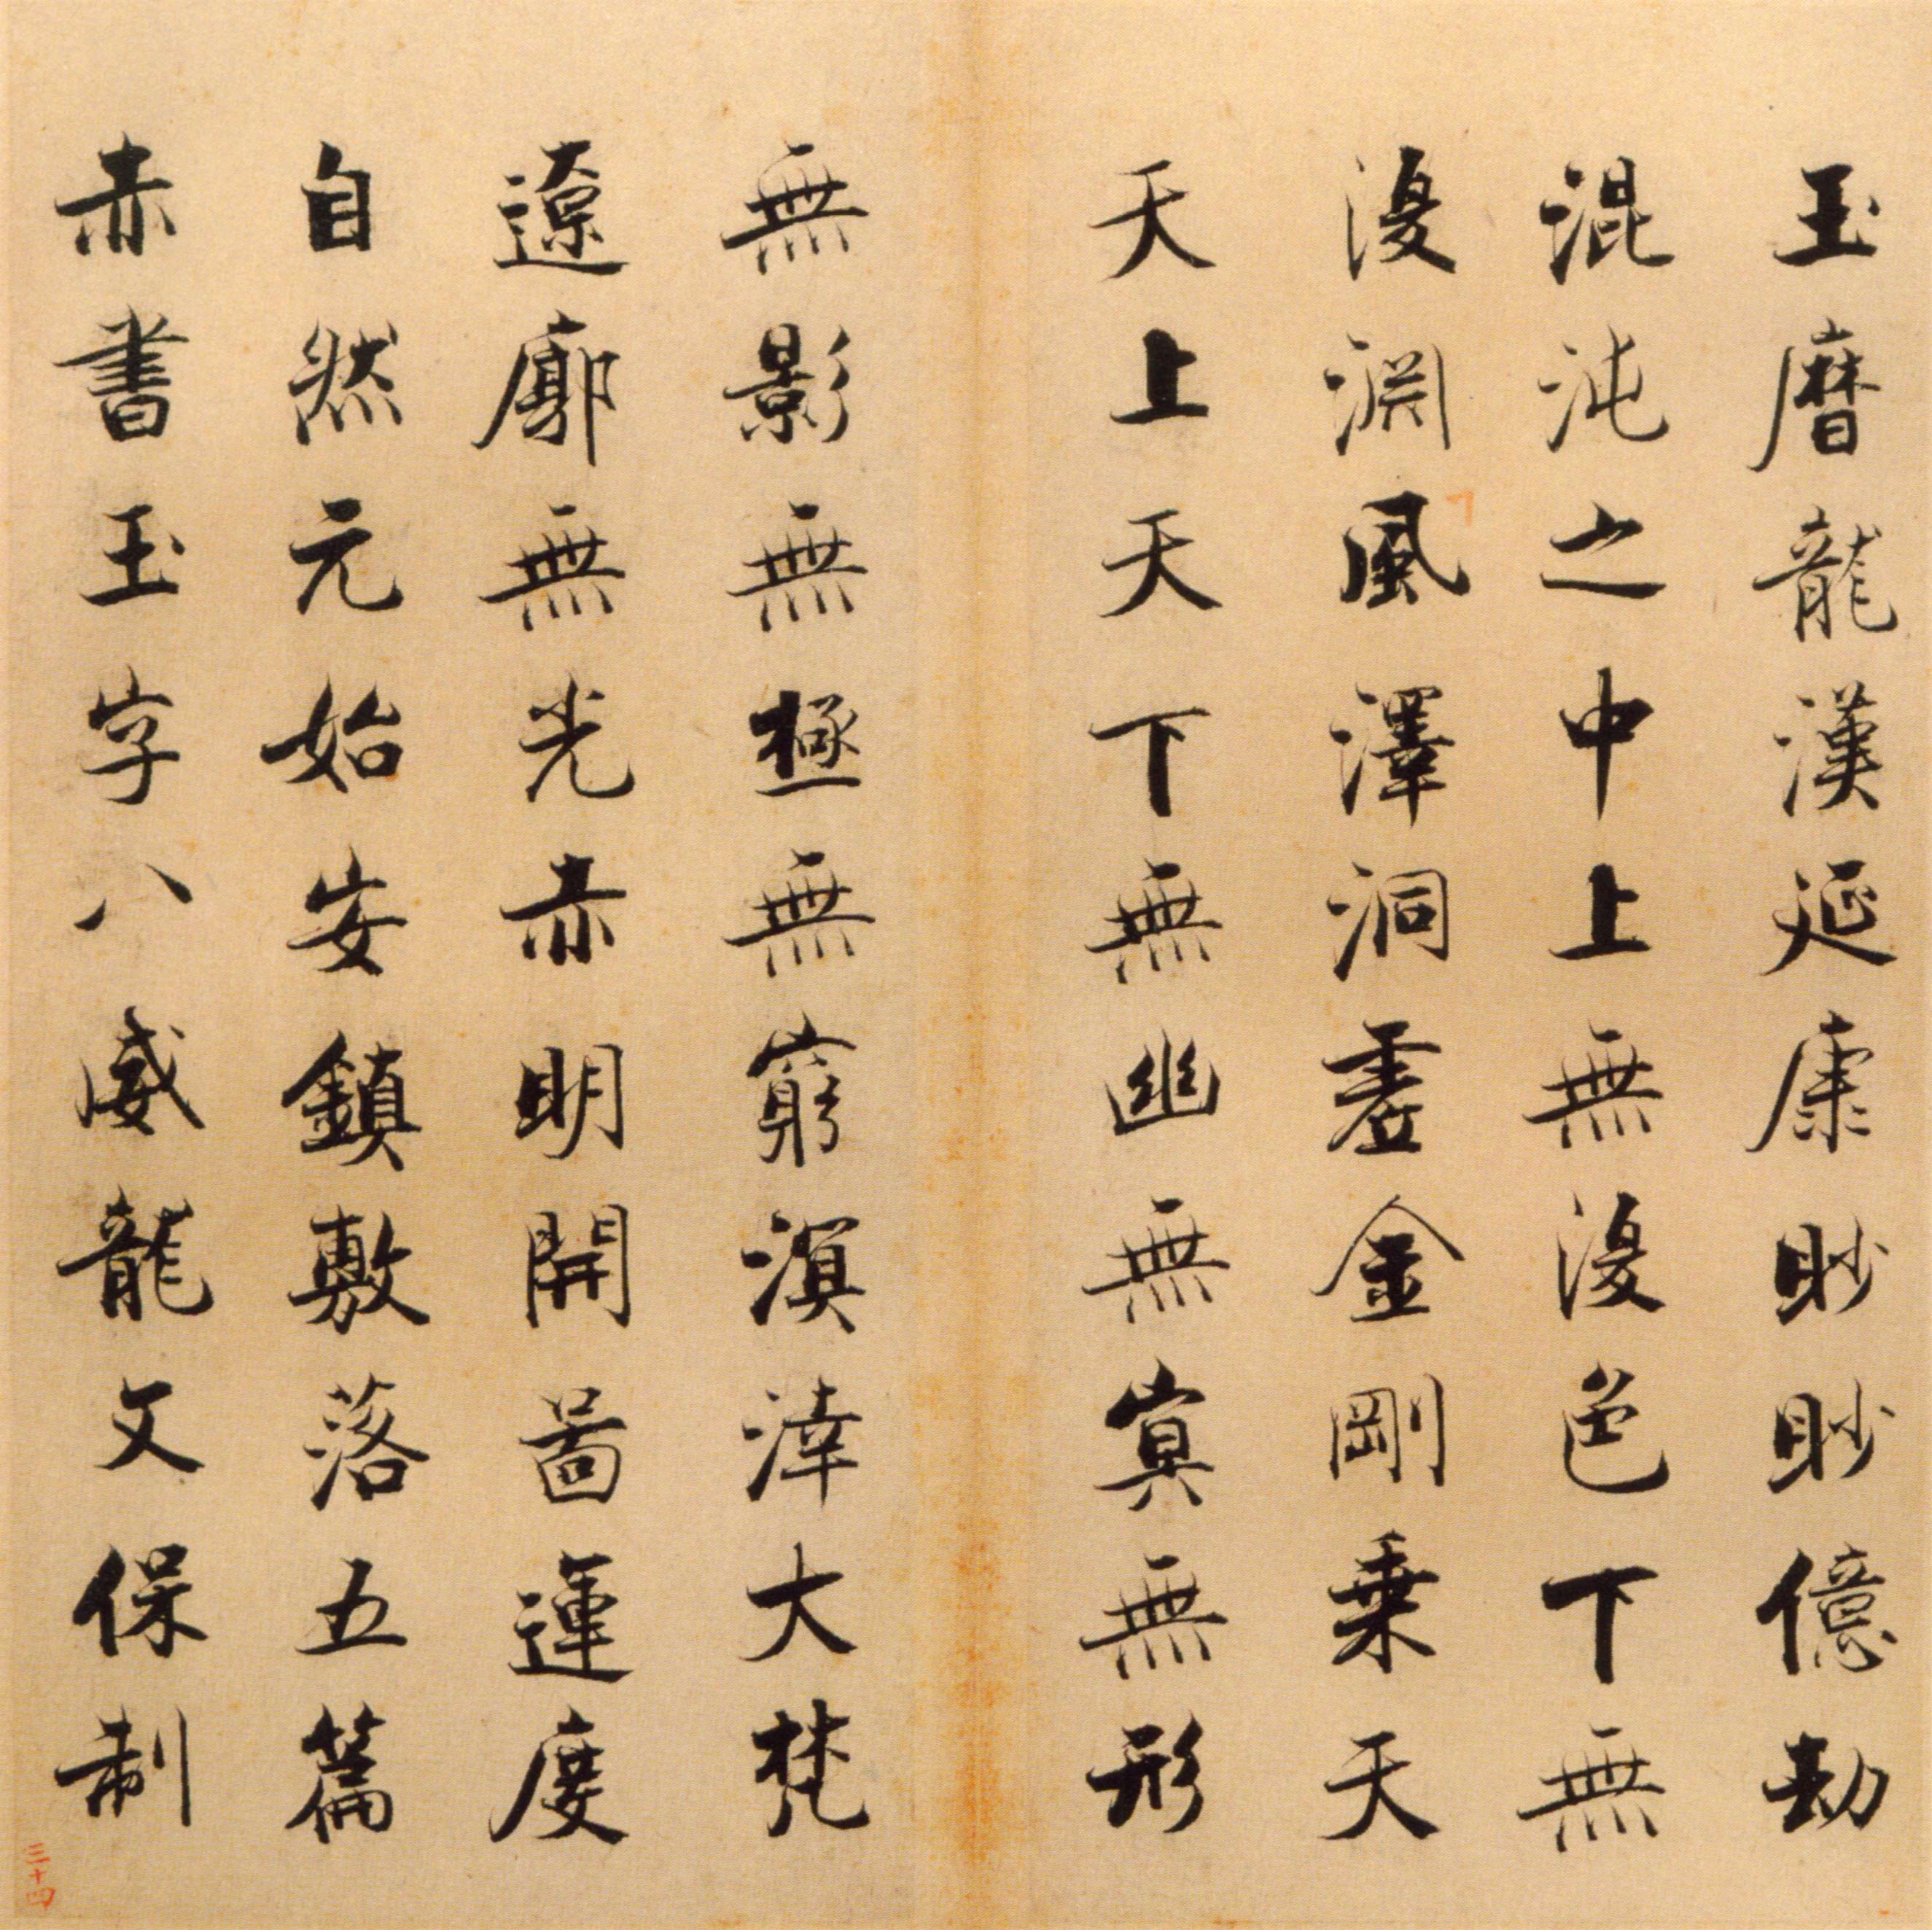 玉曆龍漢延康眇眇億劫
混沌之中上無復色下無
復淵風澤洞虛金剛乘天
天上天下無幽無冥無形
無影無極無窮溟涬大梵
遼廓無光赤明開圖運度
自然元始安鎮敷落五篇
赤書玉字八威龍文保制
三十四